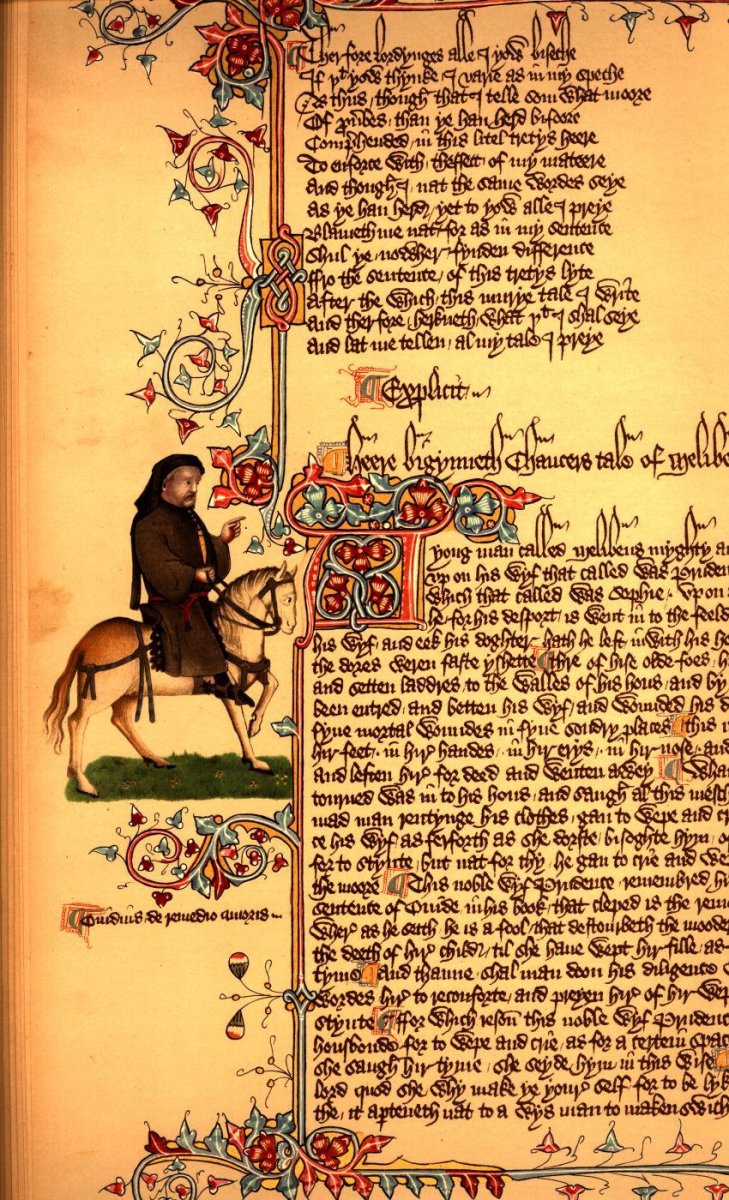 Therfore lordynges alle I yow biseche
If yt yow thynke I varie as in my speche
As thus though that I telle som what moore
Of prouerbes than ye han herd bifoore
Comprehended in this litel tretys heere
To enforce with theffect of my mateere
And though I nat the same wordes seye
As ye han herd yet to yow alle I preye
Blameth me nat for as in my sentence
Shul ye nowher fynden difference
ffro the sentence of this tretys lyte
After the which this murye tale I write
And therfore herkneth what yt I shal seye
And lat me tellen al my tale I preye
Explicit
Heere bigynneth Chaucers tale of Melibe
Yong man called Melibeus myghty a
vp on his wyf that called was Pruden
which that called was Sophie vpon
he for his desport is went in to the feeld
his wyf and eek his doghter hath he left inwith his h
the dores weren faste yshette thre of hise olde foes h
and setten laddres to the walles of his hous and by
been entred and betten his wyf and wounded his d
fyue mortal woundes in fyue sondry places this i
hir feet in hir handes in hir erys in hir nose and
and leften hir for deed and wenten awey Whan
tourned was in to his hous and saugh al this mesch
mad man rentynge his clothes gan to wepe and cr
ce his wyf as ferforth as she dorste bisoghte hym o
for to stynte but nat for thy he gan to crie and we
the moore This noble wyf Prudence remembred hi
sentence of Ouide in his book that cleped is the rem
wher as he seith he is a fool that destourbeth the mooder
the deeth of hir child til she haue wept hir fille as
tyme And thanne shal man doon his diligence
wordes hir to reconforte and preyen hir of hir wep
stynte ffor which reson this noble wyf Prudenc
housbonde for to wepe and crie as for a certein spac
she saugh hir tyme she seyde hym in this wise
lord quod she why make ye your self for to be lyk
the it aperteneth nat to a wys man to maken swich
Ouidius de remedio amoris